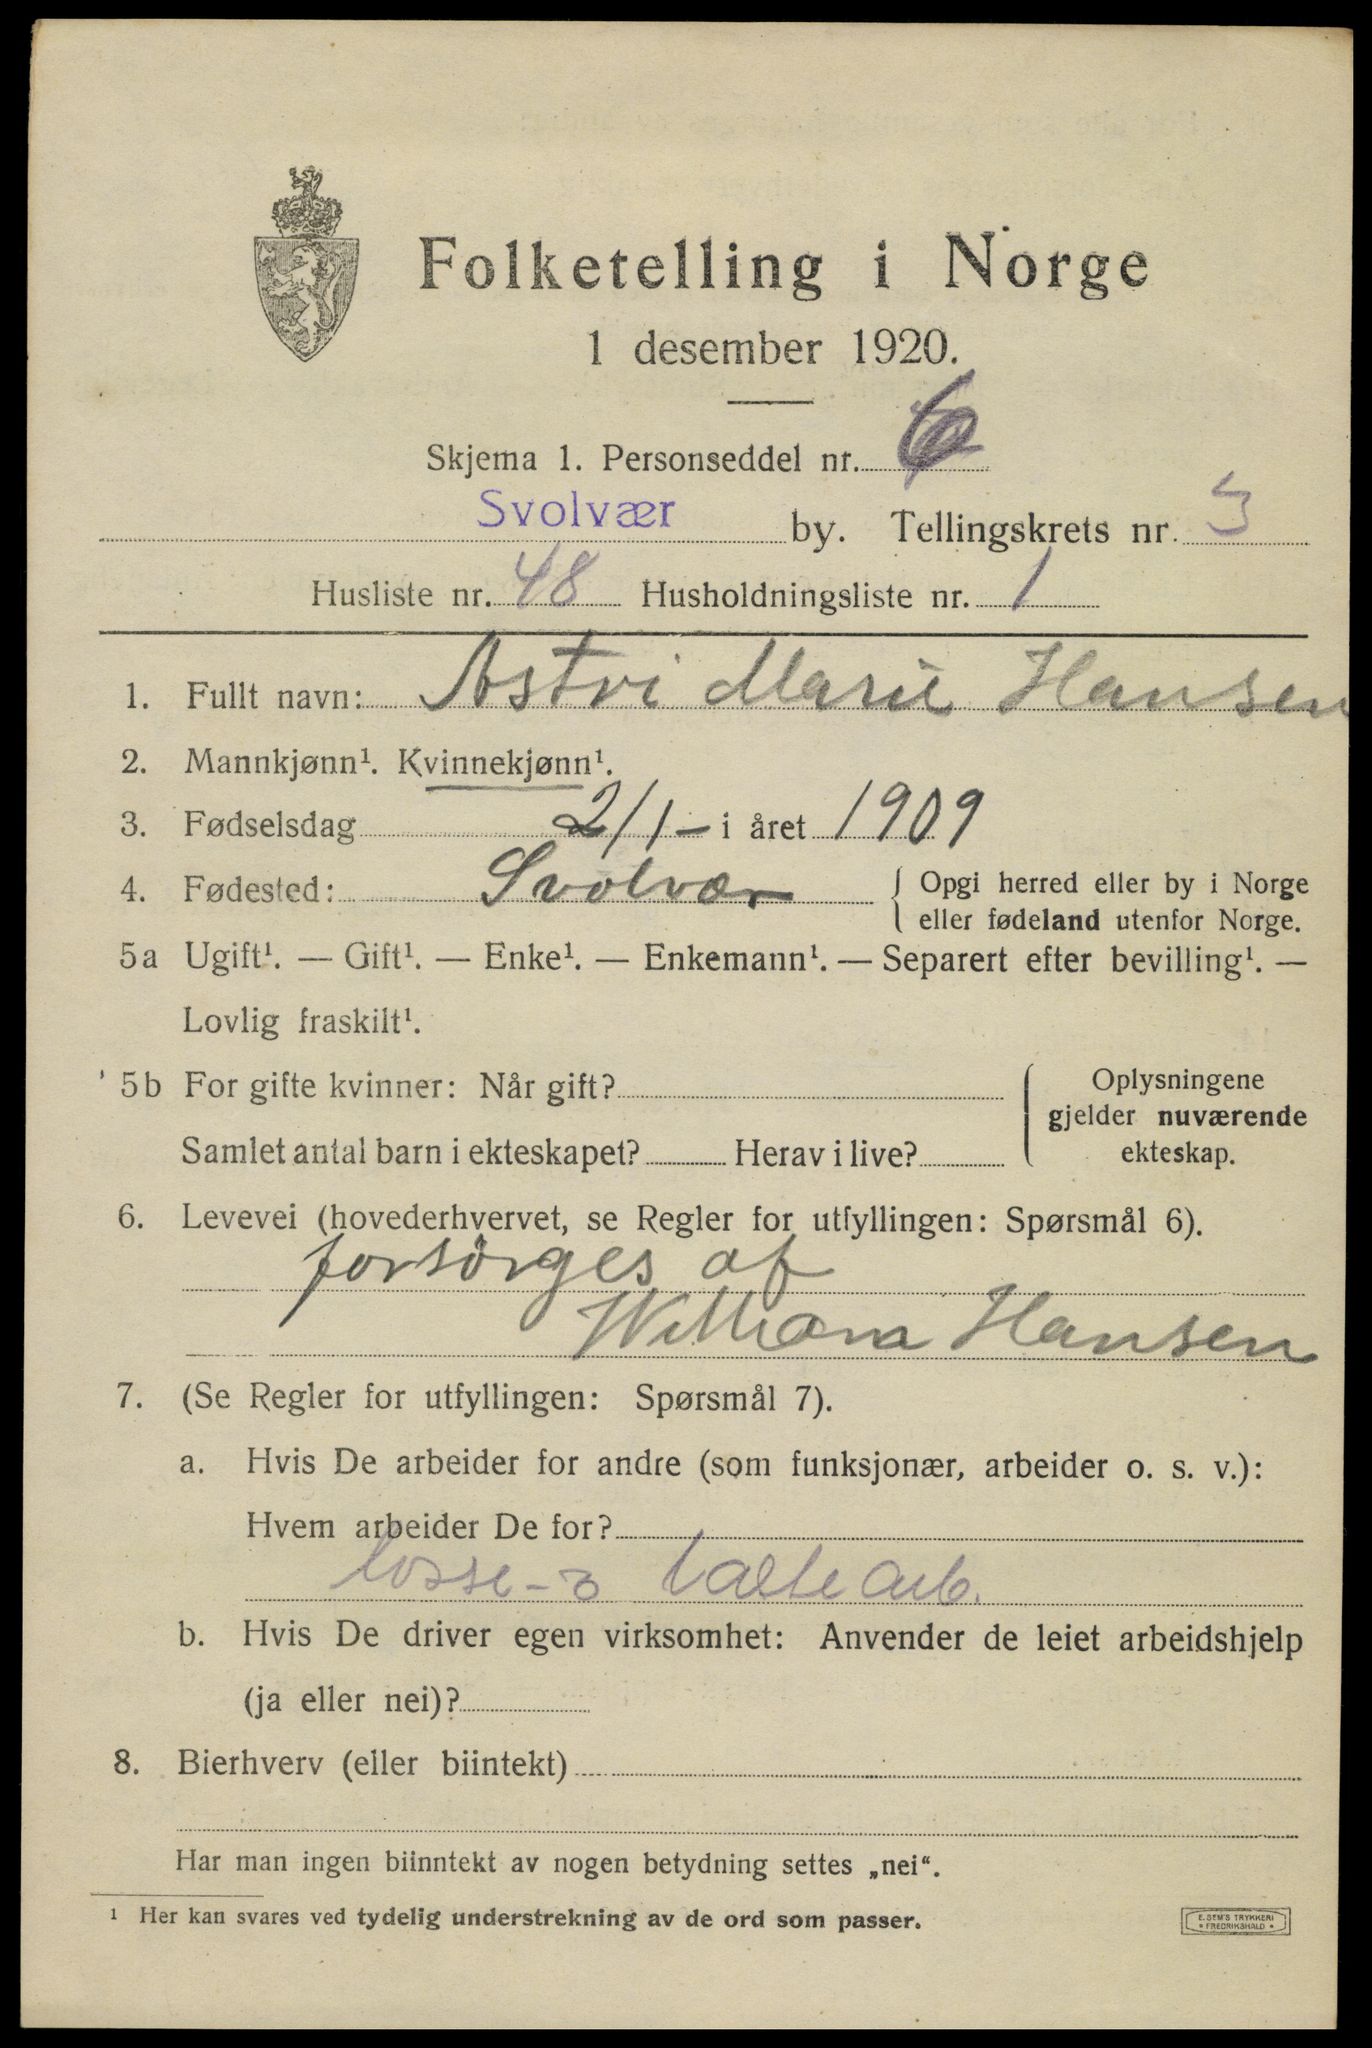 Folketelling i Norge
1 desember 1920.
Skjema 1. Personseddel nr. 6
Svolvær by. Tellingskrets nr. 3
Husliste nr. 48 Husholdningsliste nr. 1
1. Fullt navn: Astri Marie Hansen
2. Mannkjønn¹. Kvinnekjønn¹.
3. Fødselsdag 2/1- i året 1909
4. Fødested: Svolvær { Opgi herred eller by i Norge
eller fødeland utenfor Norge.
5a Ugift¹. — Gift¹. — Enke¹. — Enkemann¹. — Separert efter bevilling¹. —
Lovlig fraskilt¹.
5b For gifte kvinner: Når gift?
Samlet antal barn i ekteskapet? Herav i live?
Oplysningene
gjelder nuværende
ekteskap.
6. Levevei (hovederhvervet, se Regler for utfyllingen: Spørsmål 6).
forsörges af
William Hansen
7. (Se Regler for utfyllingen: Spørsmål 7).
a. Hvis De arbeider for andre (som funksjonær, arbeider o. s. v.):
Hvem arbeider De for?
losse- arb.
b. Hvis De driver egen virksomhet: Anvender de leiet arbeidshjelp
(ja eller nei)?
8. Bierhverv (eller biintekt)
Har man ingen biinntekt av nogen betydning settes „nei“.
¹ Her kan svares ved tydelig understrekning av de ord som passer.
E. SEM'S TRYKKERI
• FREDRIKSHALD •